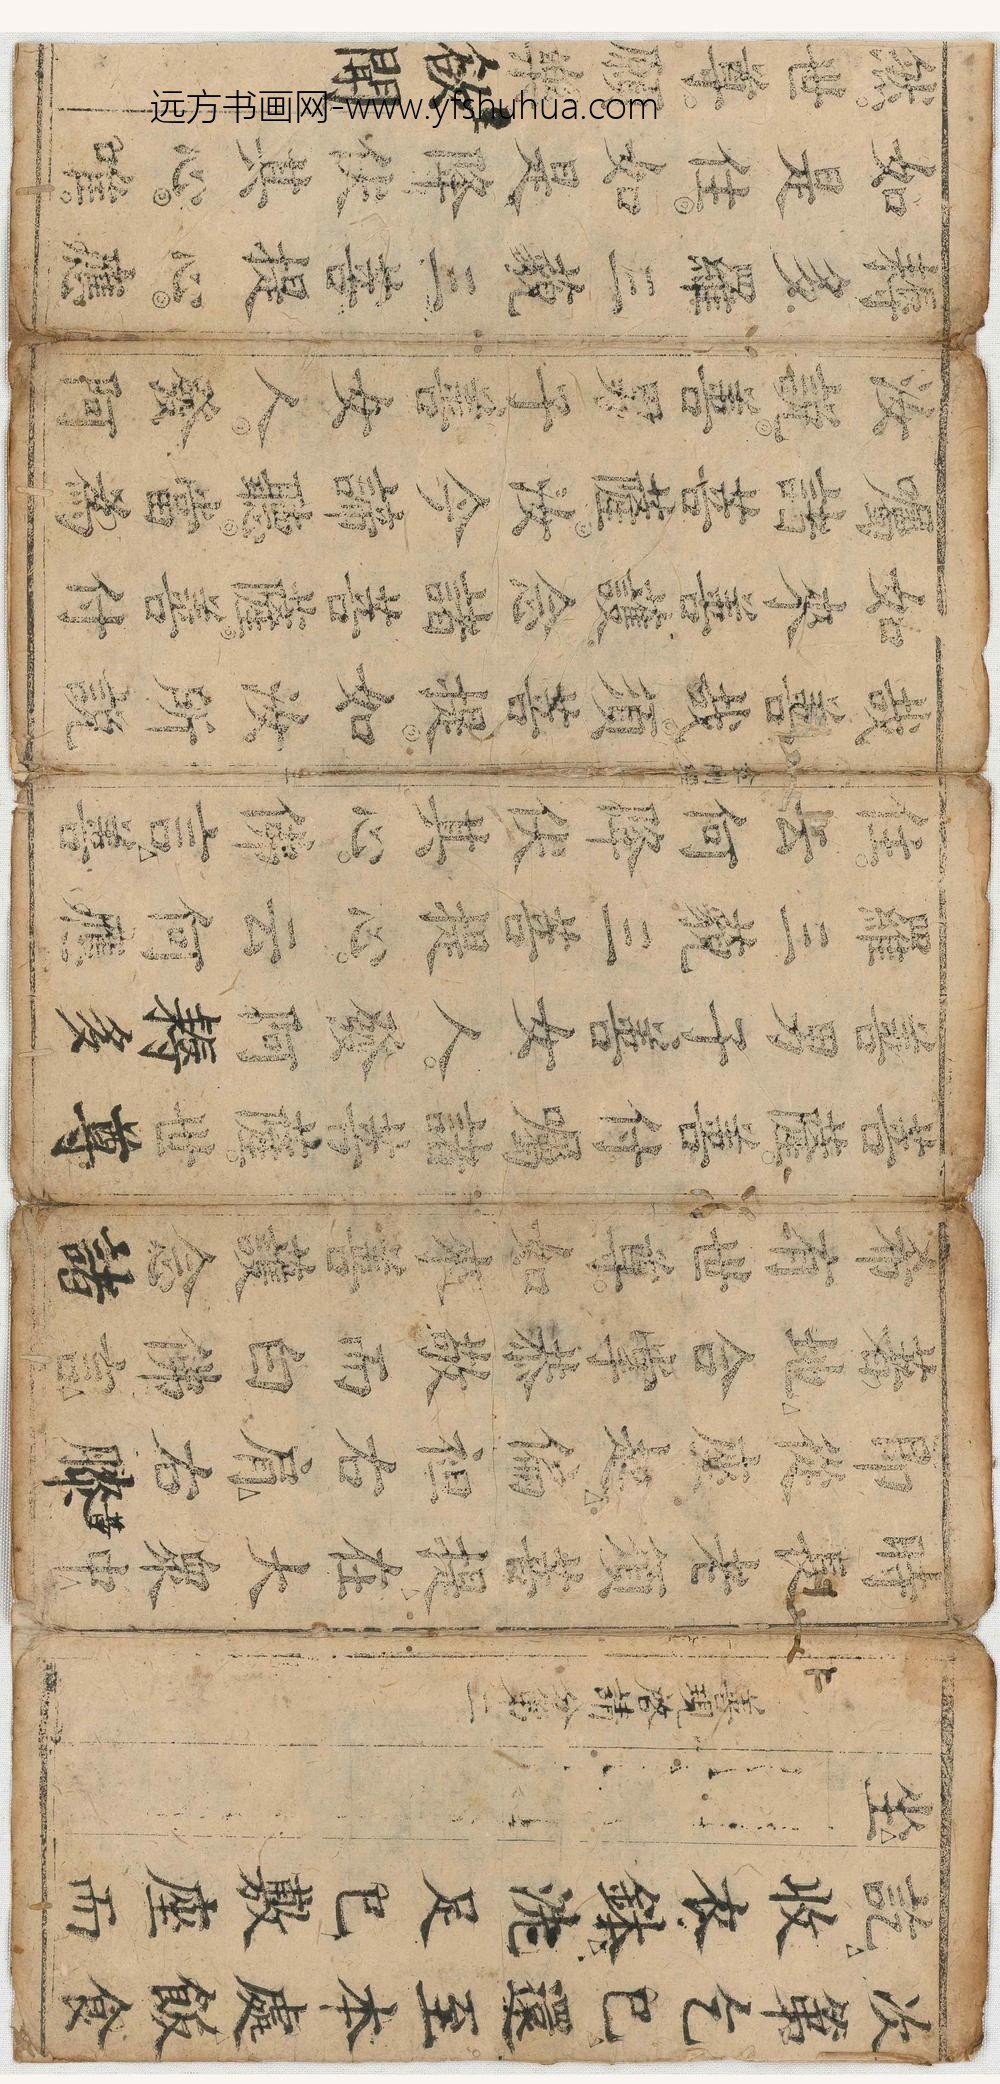 远方书画网-www.yfshuhua.com
次第乞已還至本處飯食
訖收衣鉢洗足已敷座而
坐
善現啟請分第二
時長老須菩提在大衆中
即從座起偏袒右肩右膝着
著地合掌恭敬而白佛言
希有世尊如來善護念諸
菩薩善付囑諸菩薩世尊
善男子善女人發阿耨多
羅三藐三菩提心云何應
住云何降伏其心佛言善
哉善哉須菩提如汝所說
如來善護念諸菩薩善付
囑諸菩薩汝今諦聽當為
汝說善男子善女人發阿
耨多羅三藐三菩提心應
如是住如是降伏其心唯
然世尊願樂欲聞